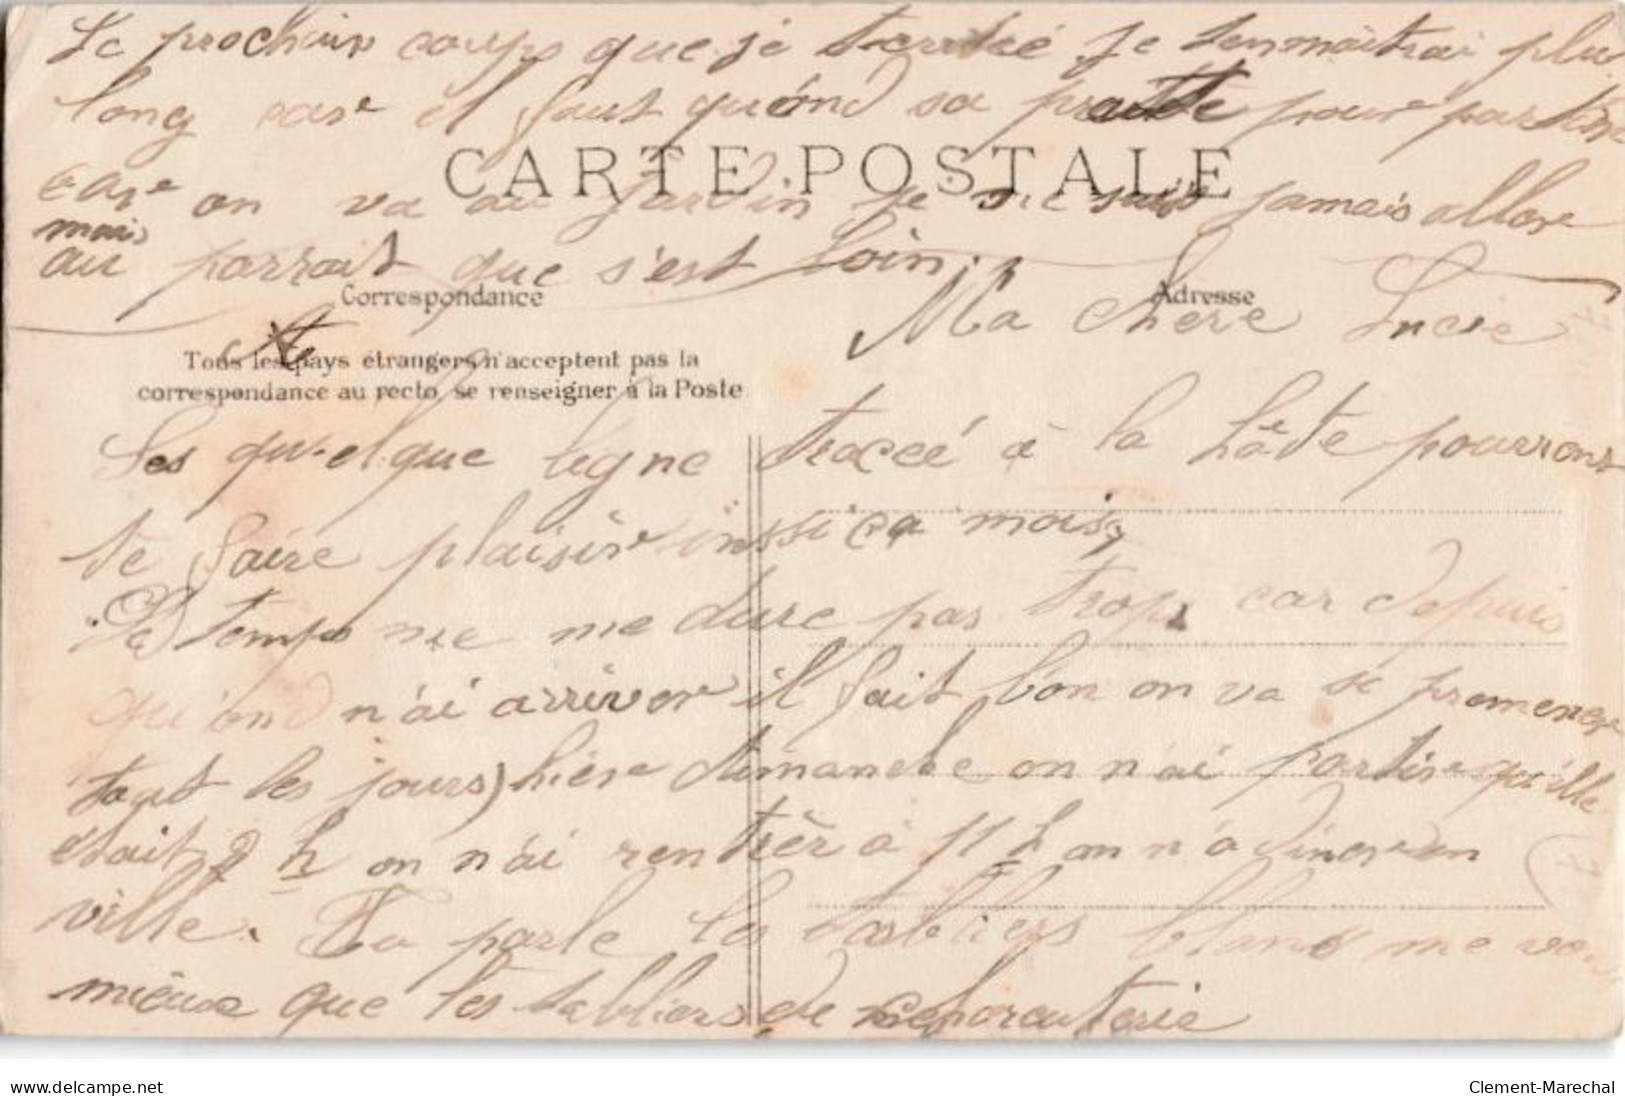 Le prochain coups que je t'ecriré je t'en maitrai plus
long car il faut qu'ond sa praite pour partire
CARTE POSTALE
car on va au jardin je ne suis jamais allere
mais
au parrait que s'est loin.
Correspondance
Adresse
Ma chère Lucie
Tous les pays étrangers n'acceptent pas la
correspondance au recto, se renseigner à la Poste
Ses quelque ligne traceé à la hâte pourront
te faire plaisir inssi ca mois,
Le temps ne me dure pas trop car depuis
qu'ond n'ai arriver il fait bon on va se promener
tout les jours, hière dimanche on n'ai partire qu'ille
était 2 h on n'ai rentrèr à 11 h on n'a diner en
ville. Tu parle les tabliers blans me vons
mieux que les tabliers de charcuterie
www.delcampe.net
Clement-Marechal